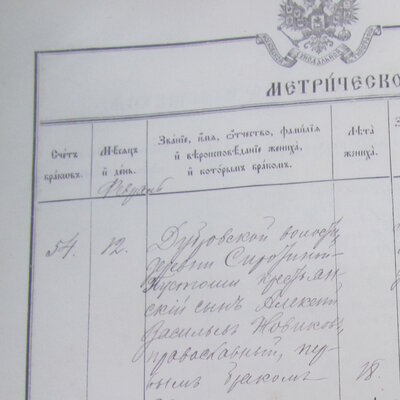 МЕТРИ́ЧЕСКО
Счетъ бра́ковъ.
Мѣсяцъ и́ день.
Зва́ніе, и́мя, ѻ́тчество, фами́лїѧ и́ вѣроисповѣ́даніе жениха̀, и́ кото́рымъ бра́комъ.
Лѣ́та жениха̀.
Февраль
54.
12.
Дубровской волости,
деревни
Пустоши крестьян-
скій сынъ Алексѣй
Васильевъ Новиковъ,
православный, пер-
вымъ бракомъ
18.